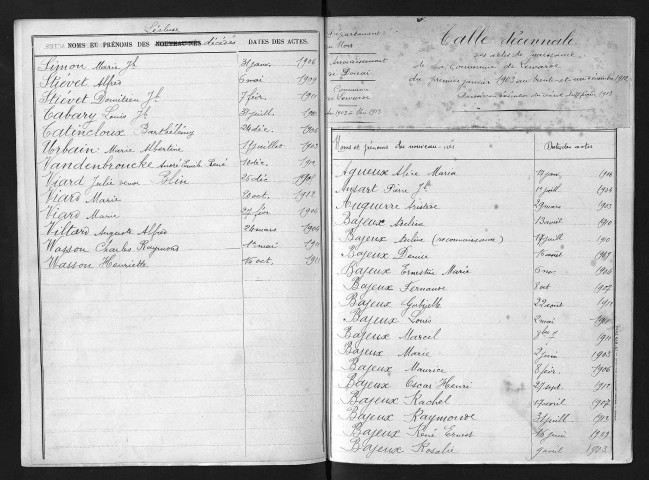 Lécluse
NOMS ET PRÉNOMS DES NOUVEAU-NÉS décédés DATES DES ACTES.
Simon Marie Jh 31 janv. 1906
Stiévet Alfred 6 mai 1909
Stievet Domitien Jh 7 fév. 1911
Tabary Louis Jh juill.
Talincloux Barthélémy 24 déc. 1906
Urbain Marie Albertine juillet 1903
Vandenbroucke André Emile René 10 déc.
Viard Julie veuve Blin 25 déc.
Viard Marie 20 oct. 1912
Viard Marie 27 fév 1906
Villard Auguste Alfred 24 mars 1906
Wasson Charles Raymond 1er mai 1911
Wasson Henriette 16 oct. 1911
Département du Nord
Arrondissement de Douai
Commune de Lewarde
Table décennale
des actes de naissance
de la Commune de Lewarde
du premier janvier 1903 au trente et un décembre 1912
Noms et prénoms des nouveau-nés Dates des actes
Aqueux Alire Maria janv. 1906
Aussart Pierre Jh 1er juill 1908
Auguerre Aristide 29 mars 1903
Bajeux Avelina 13 août 1910
Bajeux Avelina (reconnaissance) 17 juill 1910
Bajeux Denise août
Bajeux Ernestine Marie 6 nov 1906
Bajeux Fernande 8 oct 1907
Bajeux Gabrielle 22 août 1911
Bajeux Louis 2 mai
Bajeux Marcel 1911
Bajeux Marie 2 juin 1903
Bajeux Maurice 8 fév. 1906
Bajeux Oscar Henri 27 sept.
Bajeux Rachel 17 avril 1907
Bajeux Raymonde 31 juill 1903
Bajeux René Ernest 16 juin 1909
Bajeux Rosalie 9 avril 1903